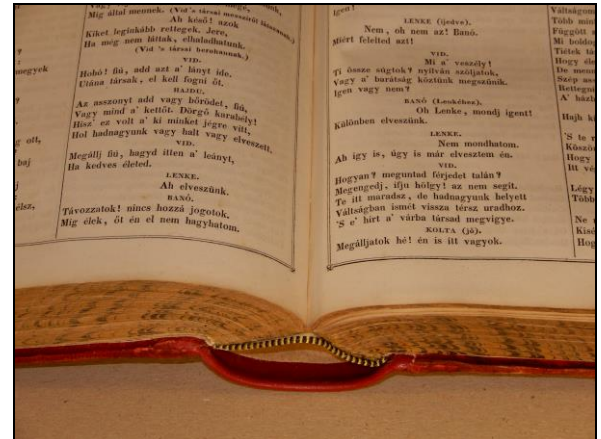 megyek
?
?
g ott,
baj
élsz,
Mig által mennek. (Vid's társai messziről látszanak.)
Ah késő! azok
Kiket leginkább rettegek. Jere,
Ha még nem láttak, elhaladhatunk.
(Vid 's társai berohannak.)
VID.
Hohó! fiú, add azt a' lányt ide.
Utána társak, el kell fogni őt.
HAJDU.
Az asszonyt add vagy bőrödet, fiú,
Vagy mind a' kettőt. Dörgő karabély!
Hisz' ez volt a' ki minket jégre vitt,
Hol hadnagyunk vagy halt vagy elveszett.
VID.
Megállj fiú, hagyd itten a' leányt,
Ha kedves életed.
LENKE.
Ah elveszünk.
BANÓ.
Távozzatok! nincs hozzá jogotok.
Mig élek, őt én el nem hagyhatom.
igen!
LENKE (ijedve).
Nem, oh nem az! Banó.
Miért felelted azt!
VID.
Mi a' veszély!
Ti össze súgtok? nyilván szóljatok,
Vagy a' barátság köztünk megszűnik.
Igen vagy nem?
BANÓ (Lenkéhez).
Oh Lenke, mondj igent!
Különben elveszünk.
LENKE.
Nem mondhatom.
Ah igy is, úgy is már elvesztem én.
VID.
Hogyan? meguntad férjedet talán?
Megengedj, ifju hölgy! az nem segít.
Te itt maradsz, de hadnagyunk helyett
Váltságban ismét vissza térsz uradhoz.
'S e' hirt a' várba társad megvigye.
KOLTA (jő).
Megálljatok hé! én is itt vagyok.
Váltságon
Több mint
Függött
Mi boldog
Tiétek
Hogy éle
De menn
Szép as
Rettegni
A' házb
Hajh ki
'S te
Köszön
Hogy
Itt vé
Légy
Több
Ne
Kisé
Hog